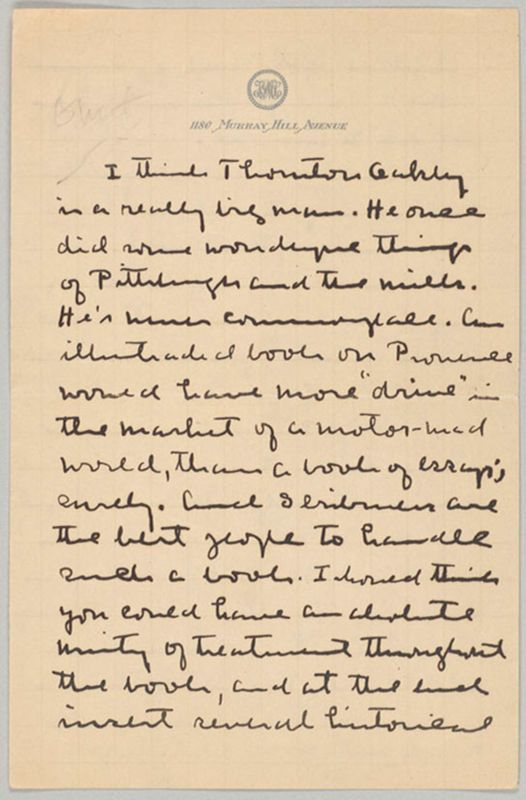 1180 MURRAY HILL AVENUE
I think Thornton Oakley
is a really big man. He once
did some wonderful things
of Pittsburgh and the mills.
He's never commonplace. An
illustrated book on Provence
would have more "drive" in
the market of a motor-mad
world, than a book of essays,
surely. And Scribners are
the best people to handle
such a book. I should think
you could have an absolute
unity of treatment throughout
the book, and at the end
insert several historical